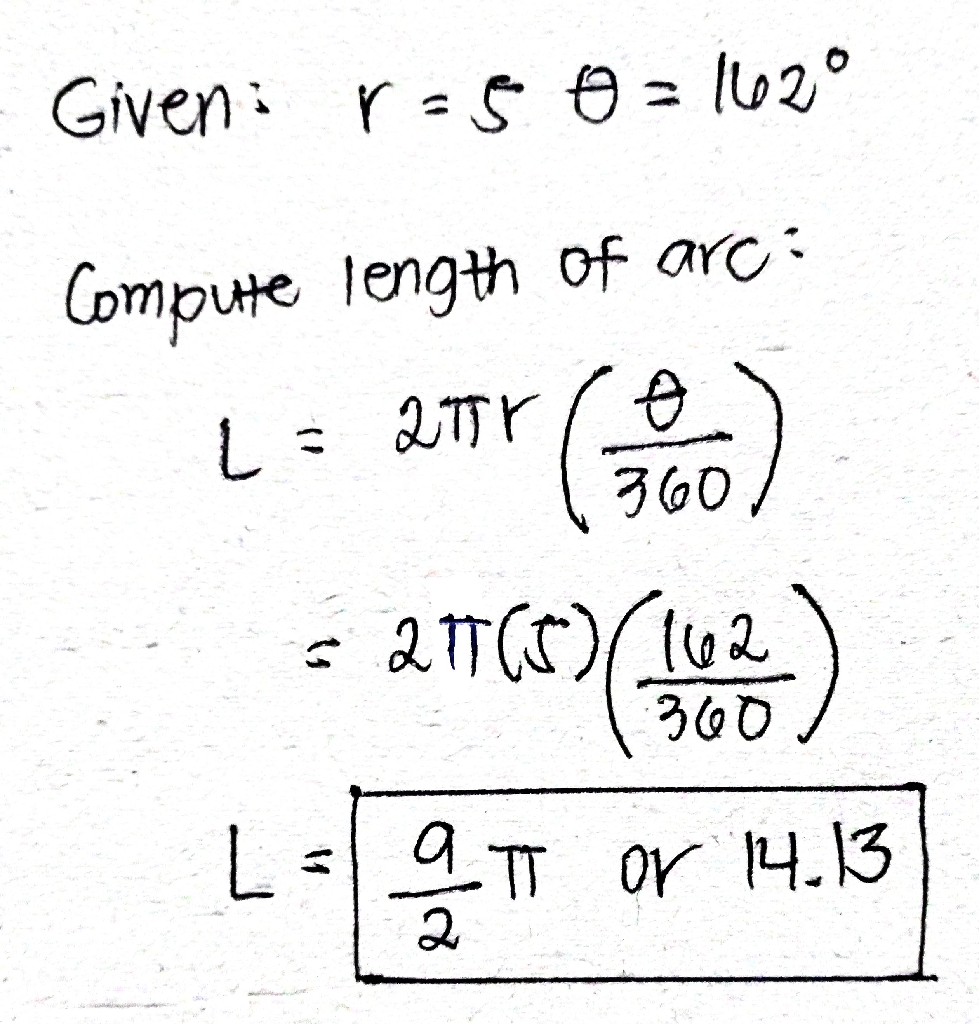 Given: r = 5 θ = 162°
Compute length of arc:
L = 2πr (θ/360)
= 2π(5)(162/360)
L = 9/2 π or 14.13